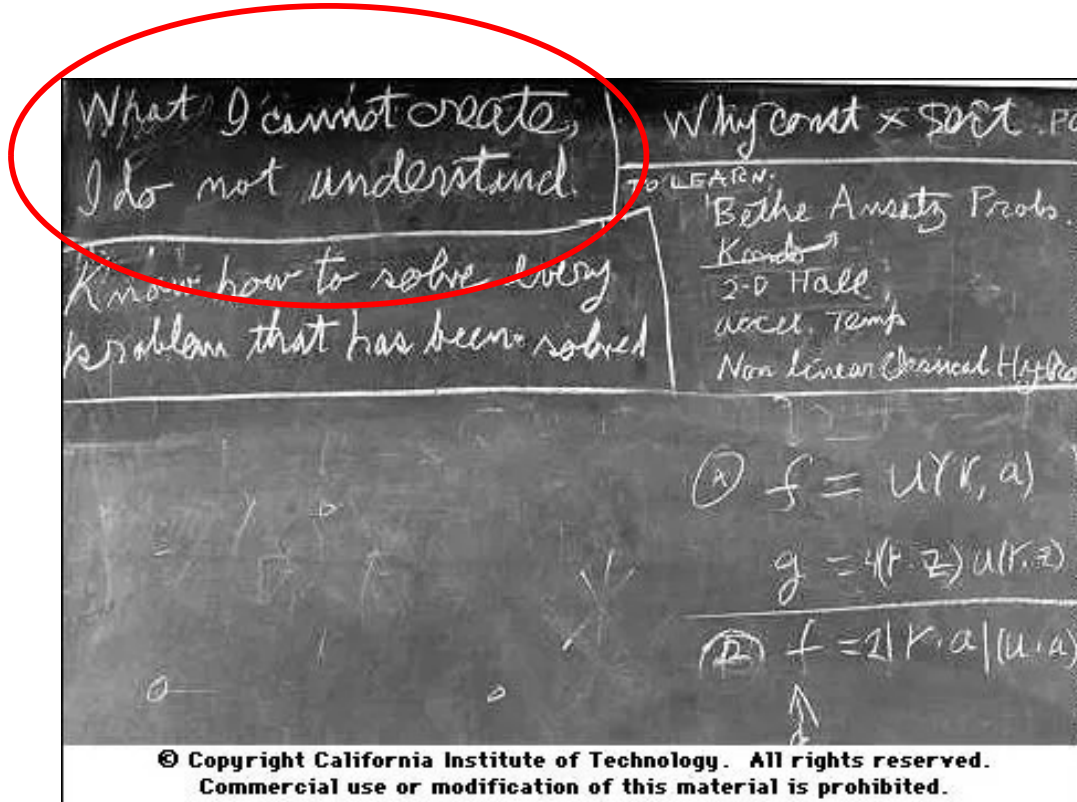 What I cannot create,
I do not understand.
Know how to solve every
problem that has been solved
Why const × sort PO
TO LEARN:
Bethe Ansatz Probs
Kondo
2-D Hall
accel. Temp
Non linear Classical Hydro
Ⓐ f = u(r, a)
g = 4(r·z) u(r,z)
f = 2|r·a|(u·a)
© Copyright California Institute of Technology. All rights reserved.
Commercial use or modification of this material is prohibited.